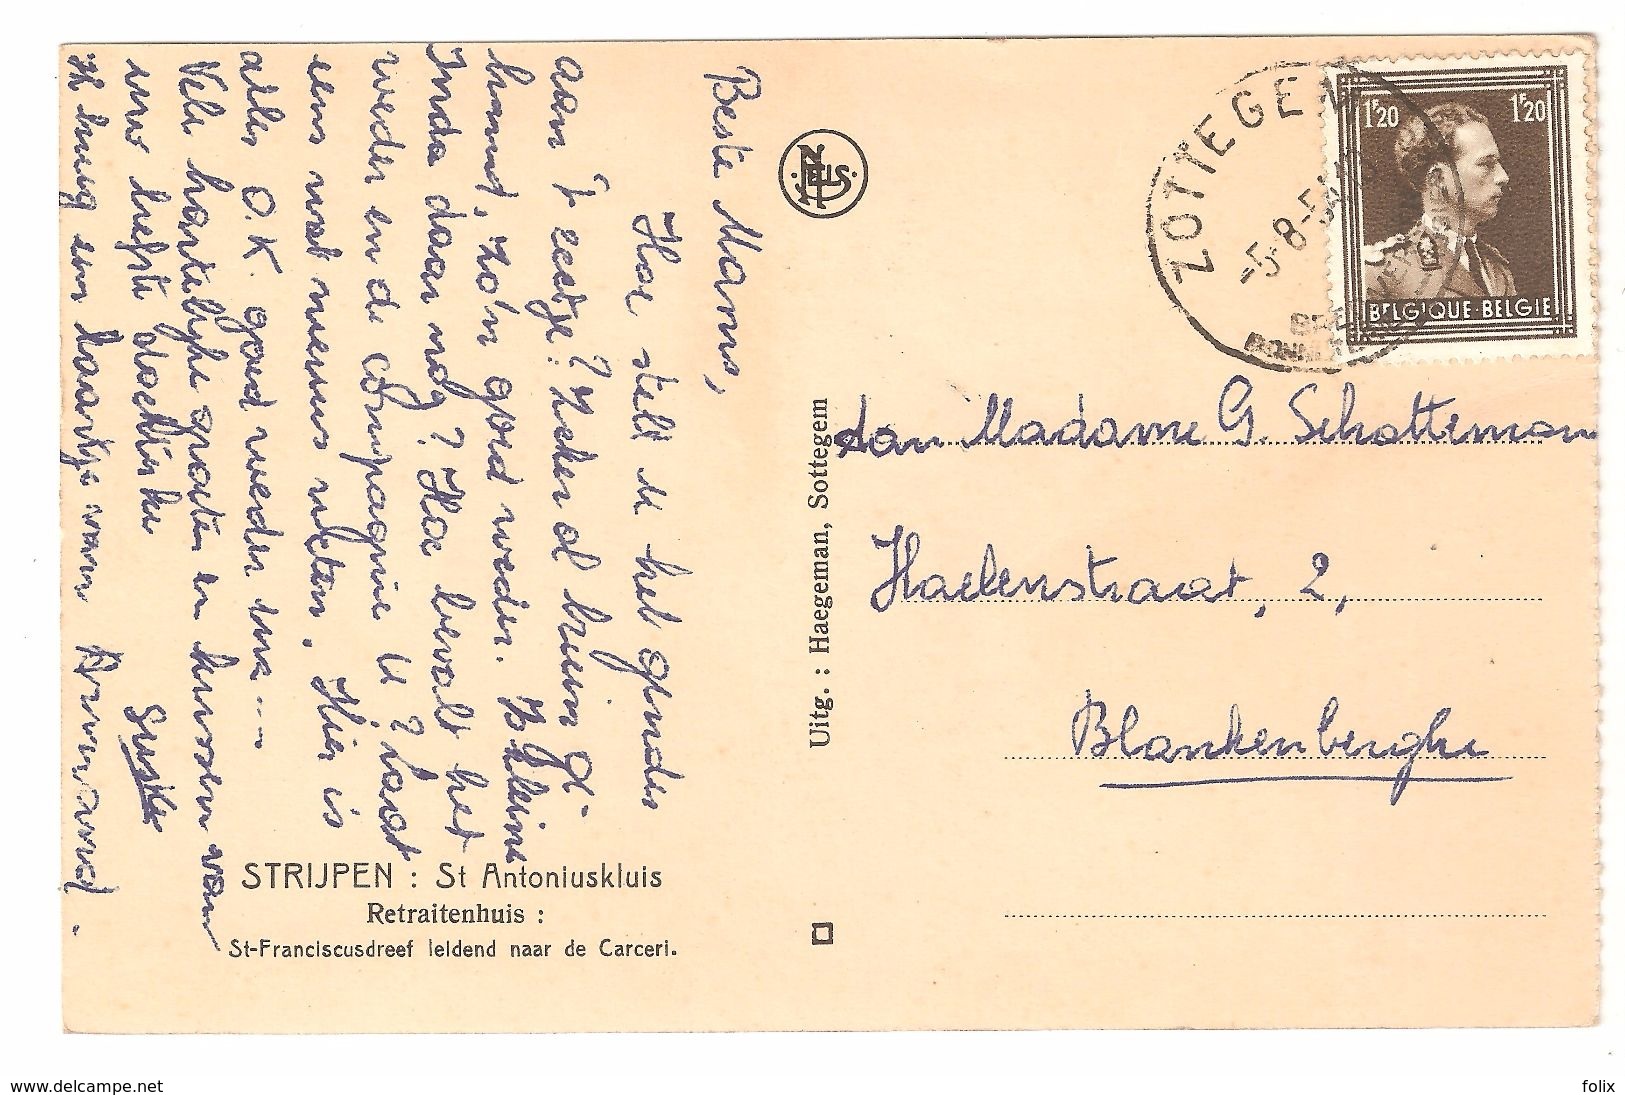 Beste Mams,
Hoe stelt u het ginds
aan 't zeetje? Zeker al bruin ge-
brand, zo'n goed weder. Is kleine
Inda daar nog? Hoe bevalt het
weder en de compagnie u? Laat
eens wat nieuws weten. Hier is
alles O.K. goed weder enz...
Vele hartelijke groeten en kussen van
uw liefste dochterke
Suske
STRIJPEN : St Antoniuskluis
Retraitenhuis :
St-Franciscusdreef leidend naar de Carceri.
Uitg. : Haegeman, Sottegem
NELS
ZOTTEGEM
-5-8-54
1F20
1F20
BELGIQUE·BELGIE
Aan Madame G. Schotteman
Haelenstraat, 2,
Blankenberghe
www.delcampe.net
folix